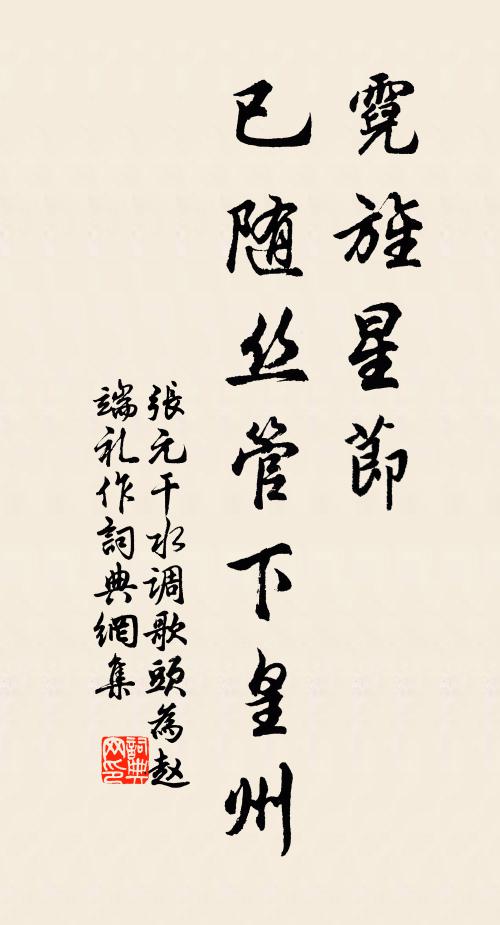 霓旌星節
已随丝管下皇州
張元干水调歌頭為赵
端礼作詞典網集
詞典
网印